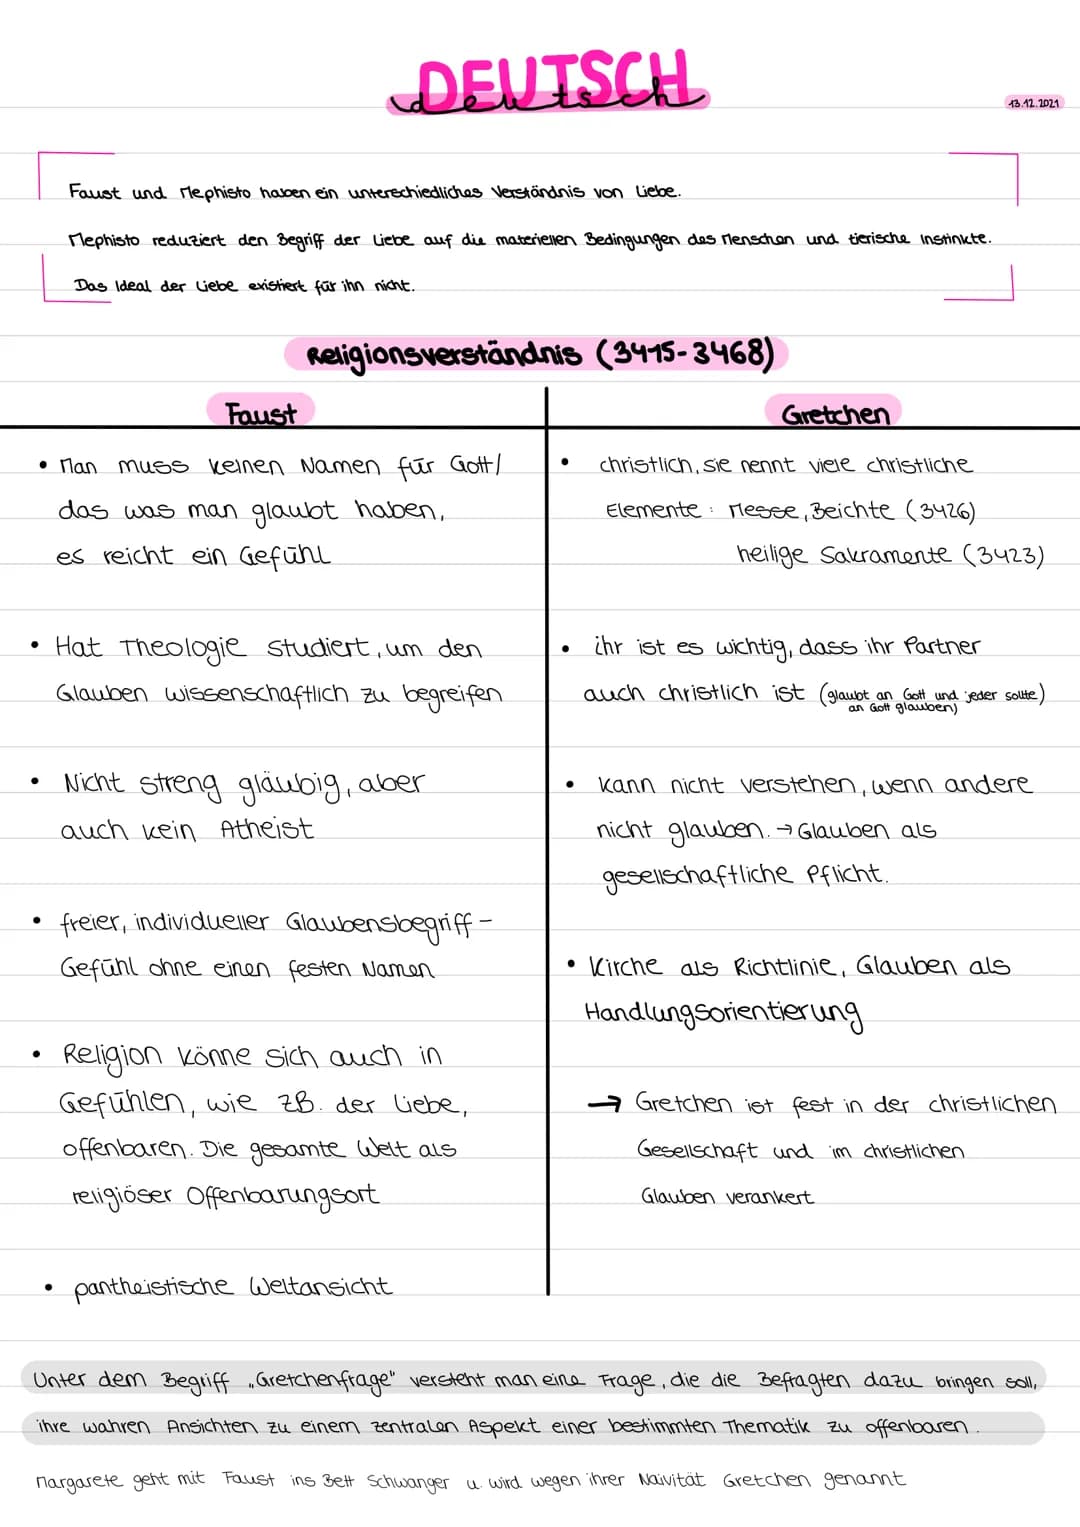 DEUTSCH
deutsch
13.12.2021
Faust und Mephisto haben ein unterschiedliches Verständnis von Liebe.
Mephisto reduziert den Begriff der Liebe auf die materiellen Bedingungen des Menschen und tierische Instinkte.
Das Ideal der Liebe existiert für ihn nicht.
Religionsverständnis (3415-3468)
Faust
• Man muss keinen Namen für Gott/
das was man glaubt haben,
es reicht ein Gefühl
• Hat Theologie studiert, um den
Glauben wissenschaftlich zu begreifen
• Nicht streng gläubig, aber
auch kein Atheist
• freier, individueller Glaubensbegriff -
Gefühl ohne einen festen Namen
• Religion könne sich auch in
Gefühlen, wie zB. der Liebe,
offenbaren. Die gesamte Welt als
religiöser Offenbarungsort
• pantheistische Weltansicht
Gretchen
• christlich, sie nennt viele christliche
Elemente: Messe, Beichte (3426)
heilige Sakramente (3423)
• ihr ist es wichtig, dass ihr Partner
auch christlich ist (glaubt an Gott und jeder sollte)
an Gott glauben)
• kann nicht verstehen, wenn andere
nicht glauben. → Glauben als
gesellschaftliche Pflicht.
• Kirche als Richtlinie, Glauben als
Handlungsorientierung
→ Gretchen ist fest in der christlichen
Gesellschaft und im christlichen
Glauben verankert
Unter dem Begriff „Gretchenfrage" versteht man eine Frage, die die Befragten dazu bringen soll,
ihre wahren Ansichten zu einem zentralen Aspekt einer bestimmten Thematik zu offenbaren.
Margarete geht mit Faust ins Bett Schwanger u. wird wegen ihrer Naivität Gretchen genannt